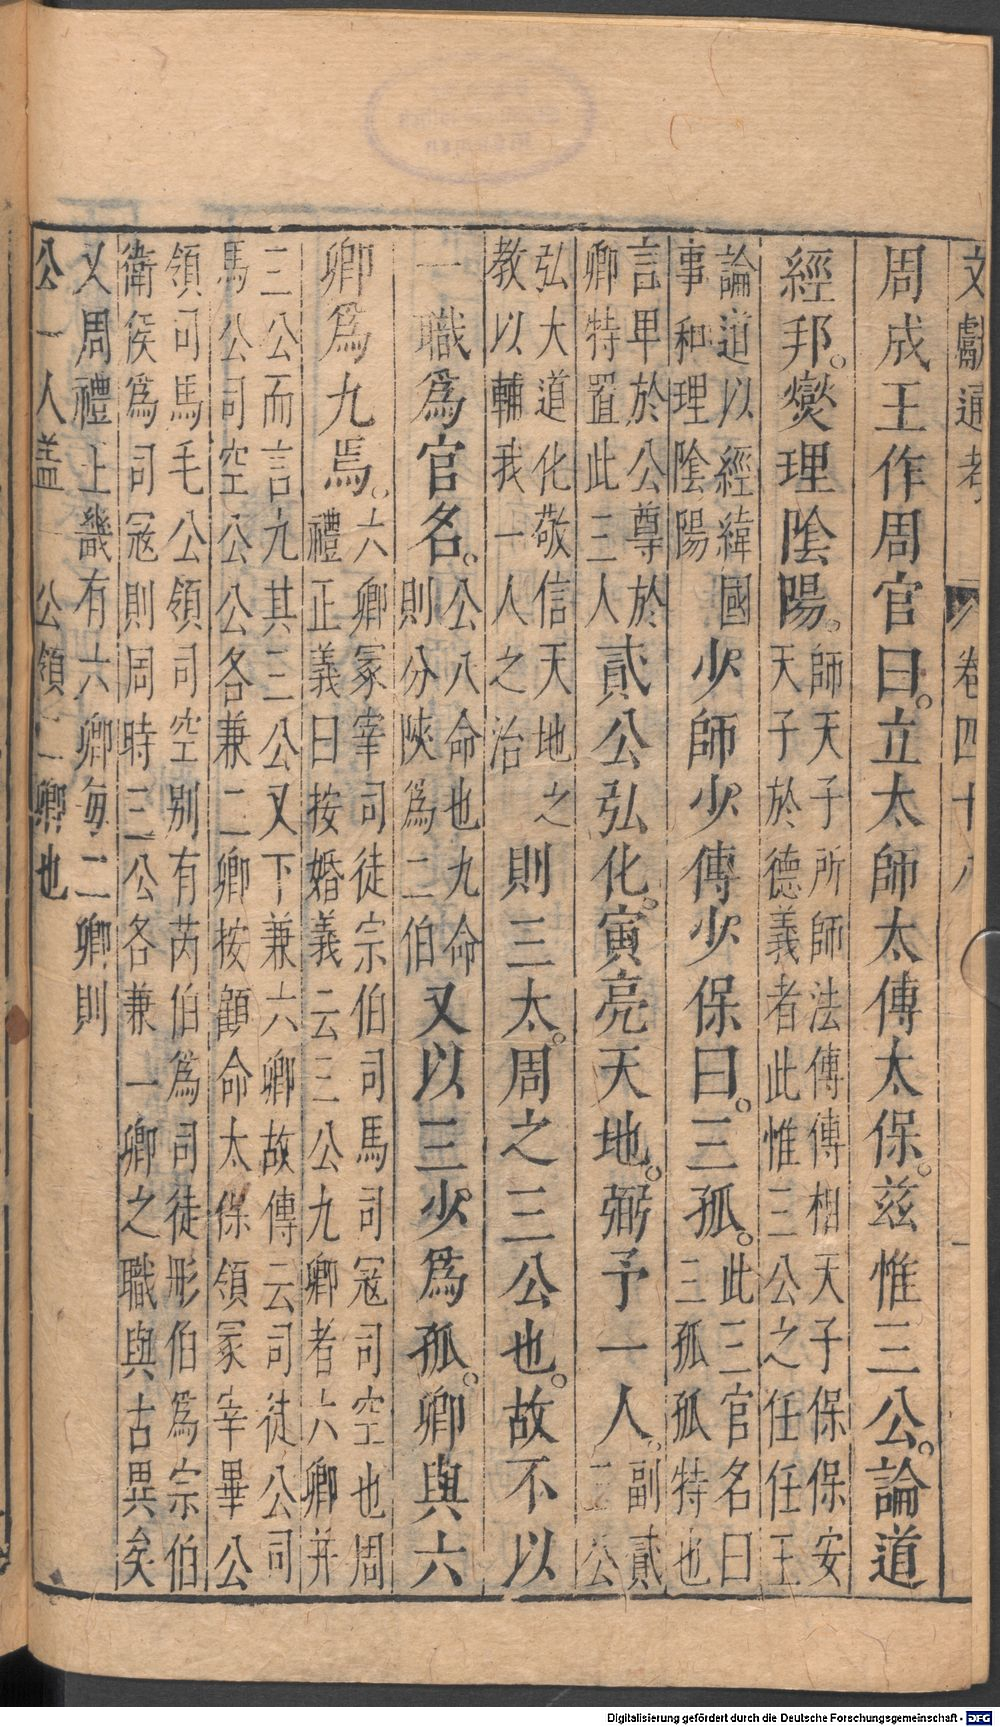 文獻通考 卷四十八 一
周成王作周官曰立太師太傅太保茲惟三公論道
經邦燮理陰陽師天子所師法傅傅相天子保保安
天子於德義者此惟三公之任任王
論道以經緯國
事和理陰陽少師少傅少保曰三孤此三官名曰
三孤孤特也
言卑於公尊於
卿特置此三人貳公弘化寅亮天地弼予一人副貳
三公
弘大道化敬信天地之
教以輔我一人之治則三太周之三公也故不以
一職為官名公八命也九命
則分陝為二伯又以三少為孤卿與六
卿為九焉六卿冢宰司徒宗伯司馬司寇司空也周
禮正義曰按婚義云三公九卿者六卿并
三公而言九其三公又下兼六卿故傳云司徒公司
馬公司空公公各兼二卿按顧命太保領冢宰畢公
領司馬毛公領司空别有芮伯為司徒彤伯為宗伯
衛侯為司寇則周時三公各兼一卿之職與古異矣
又周禮上畿有六卿每二卿則
公一人盖公領二卿也
Digitalisierung gefördert durch die Deutsche Forschungsgemeinschaft - DFG